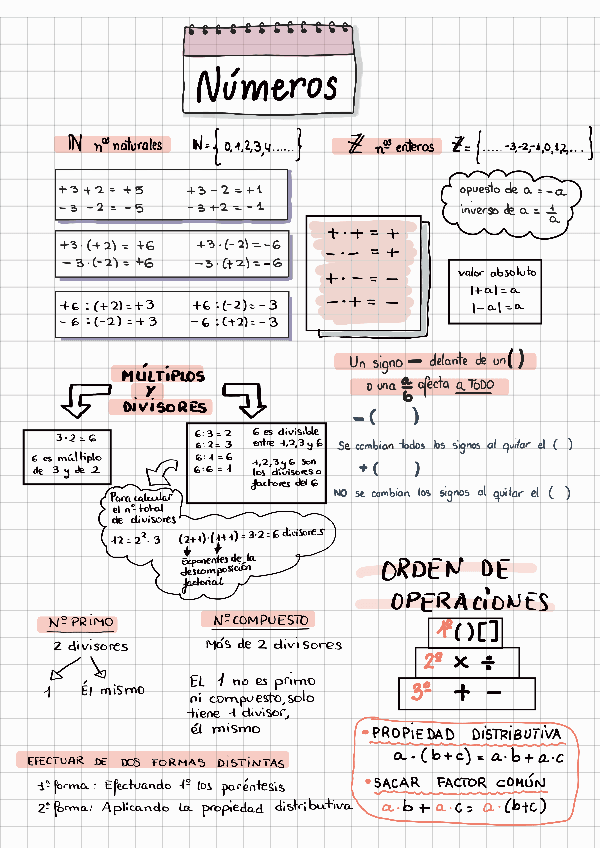 Números
ℕ nº naturales ℕ = {0,1,2,3,4......}
ℤ nº enteros ℤ = {.....-3,-2,-1,0,1,2,...}
+3+2 = +5 +3-2 = +1
-3-2 = -5 -3+2 = -1
+3·(+2) = +6 +3·(-2) = -6
-3·(-2) = +6 -3·(+2) = -6
+6:(+2) = +3 +6:(-2) = -3
-6:(-2) = +3 -6:(+2) = -3
+ · + = +
- · - = +
+ · - = -
- · + = -
opuesto de a = -a
inverso de a = 1/a
valor absoluto
|+a| = a
|-a| = a
MÚLTIPLOS
Y
DIVISORES
3·2 = 6
6 es múltiplo
de 3 y de 2
6:3 = 2
6:2 = 3
6:1 = 6
6:6 = 1
6 es divisible
entre 1,2,3 y 6
1,2,3 y 6 son
los divisores o
factores del 6
Para calcular
el nº total
de divisores
12 = 2²·3 (2+1)·(1+1) = 3·2 = 6 divisores
Exponentes de la
descomposición
factorial
Un signo - delante de un ( )
o una a/b afecta a TODO
- ( )
Se cambian todos los signos al quitar el ( )
+ ( )
NO se cambian los signos al quitar el ( )
ORDEN DE
OPERACIONES
1º ( ) [ ]
2º × ÷
3º + -
Nº PRIMO
2 divisores
1 Él mismo
Nº COMPUESTO
Más de 2 divisores
EL 1 no es primo
ni compuesto, solo
tiene 1 divisor,
él mismo
EFECTUAR DE DOS FORMAS DISTINTAS
1ª forma: Efectuando 1º los paréntesis
2ª forma: Aplicando la propiedad distributiva
• PROPIEDAD DISTRIBUTIVA
a·(b+c) = a·b + a·c
• SACAR FACTOR COMÚN
a·b + a·c = a·(b+c)